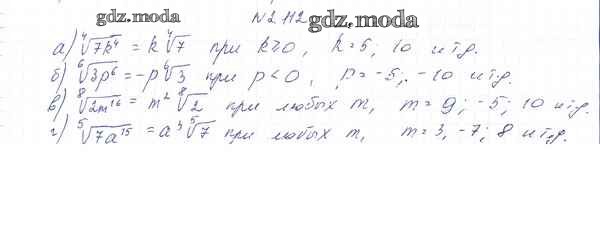 gdz.moda №2.112 gdz.moda
а) ⁴√7k⁴ = k ⁴√7 при k≥0, k=5; 10 и т.д.
б) ⁶√3p⁶ = -p ⁶√3 при p<0, p=-5; -10 и т.д.
в) ⁸√2m¹⁶ = m² ⁸√2 при любых m, m=9; -5; 10 и т.д.
г) ⁵√7a¹⁵ = a³ ⁵√7 при любых m, m=3, -7; 8 и т.д.